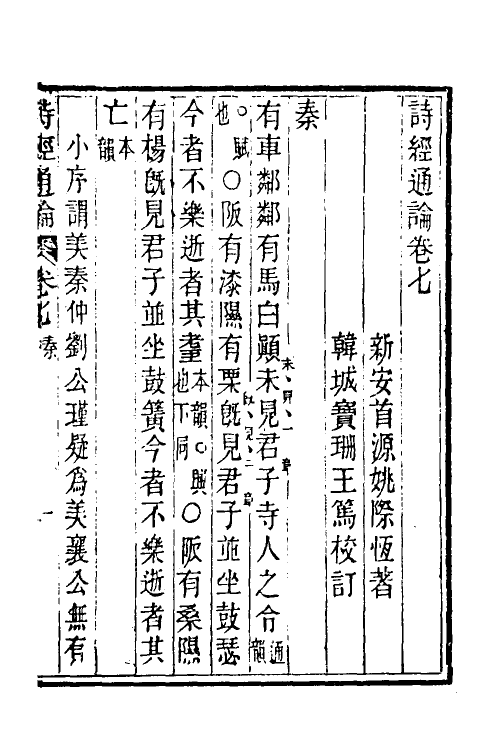 詩經通論卷七
新安首源姚際恆著
韓城寶珊王篤校訂
秦
有車鄰鄰有馬白顚未見君子寺人之令通韻
未、見、一章
也。賦〇阪有漆隰有栗旣見君子並坐鼓瑟
旣、見、二章
今者不樂逝者其耋本韻。興也下同〇阪有桑隰
有楊旣見君子並坐鼓簧今者不樂逝者其
亡本韻
小序謂美秦仲劉公瑾疑爲美襄公無有
詩經通論 卷七 秦 一